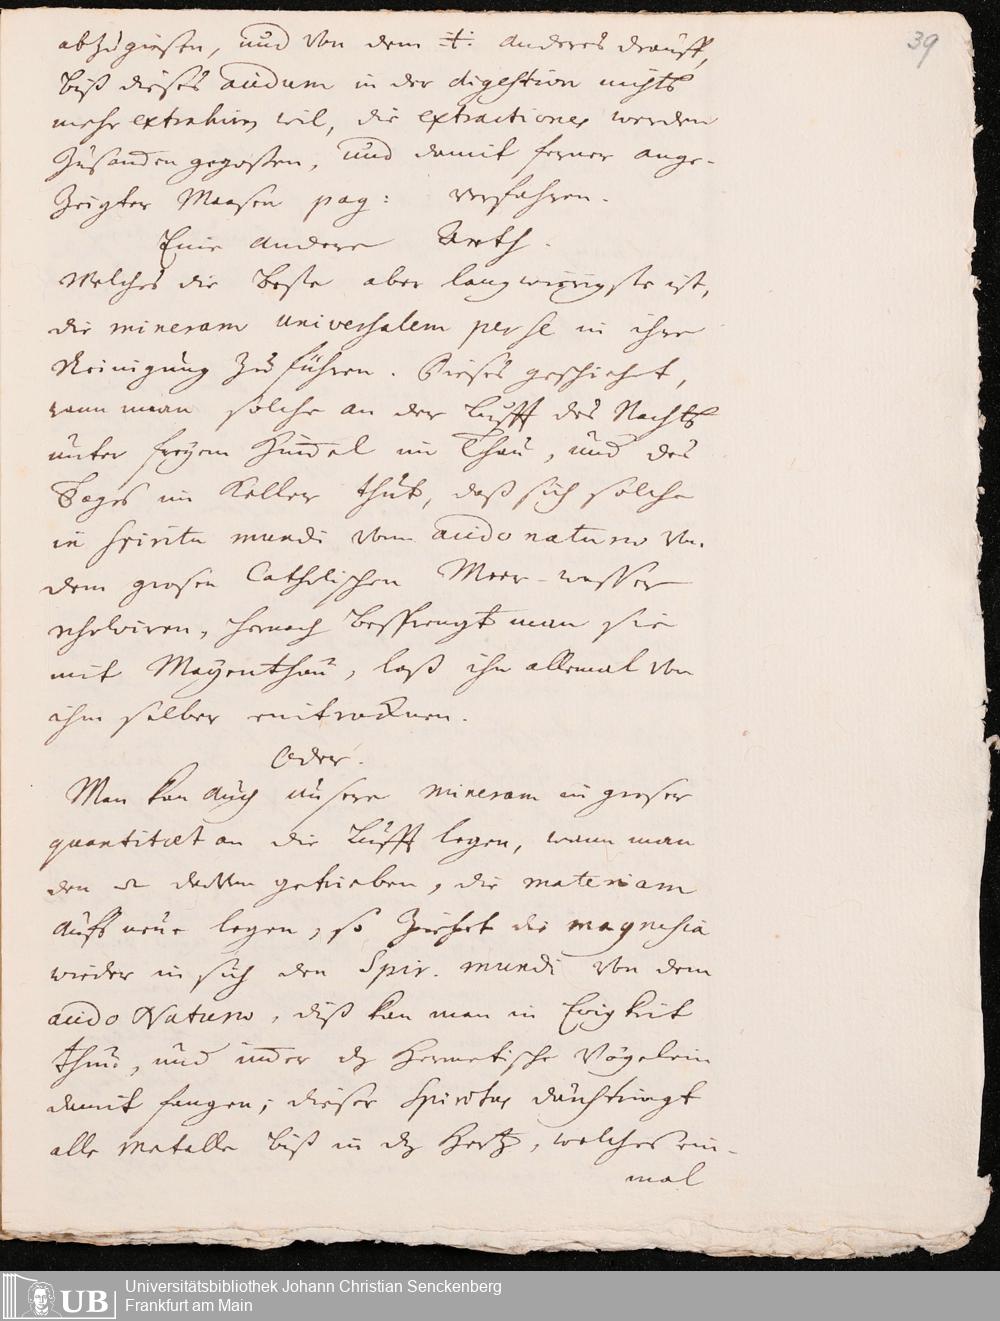 39
abzugiesen, und von dem anderes drauff,
biß dieses acidum in der digestion nichts
mehr extrahiren wil, die extractiones werden
zusammen gegossen, und damit ferner ange-
zeigter Maasen pag: verfahren.
Eine andere Arth.
Welches die beste aber langwirigste ist,
die mineram universalem per se in ihre
Reinigung zu führen. Dieses geschiehet,
wann man solche an der Lufft des Nachts
unter freyem Himmel im Thau, und des
Tages im Keller thut, daß sich solche
in spiritu mundi vom acido naturæ von
dem grosen Catholischen Meer-wasser
resolviren, hernach besprengt man sie
mit Mayenthau, laß ihn allemal von
ihm selber eintrocknen.
Oder.
Man kan auch unsere mineram in groser
quantitæt an die Lufft legen, wann man
den davon getrieben, die materiam
auffs neue legen, so ziehet die magnesia
wieder in sich den Spir. mundi von dem
acido Naturæ, diß kan man in Ewigkeit
thun, und immer dz Hermetische Vögelein
damit fangen; dieser Spiritus durchtringt
alle Metalle biß in dz Hertz, welches ein-
mal
UB
Universitätsbibliothek Johann Christian Senckenberg
Frankfurt am Main